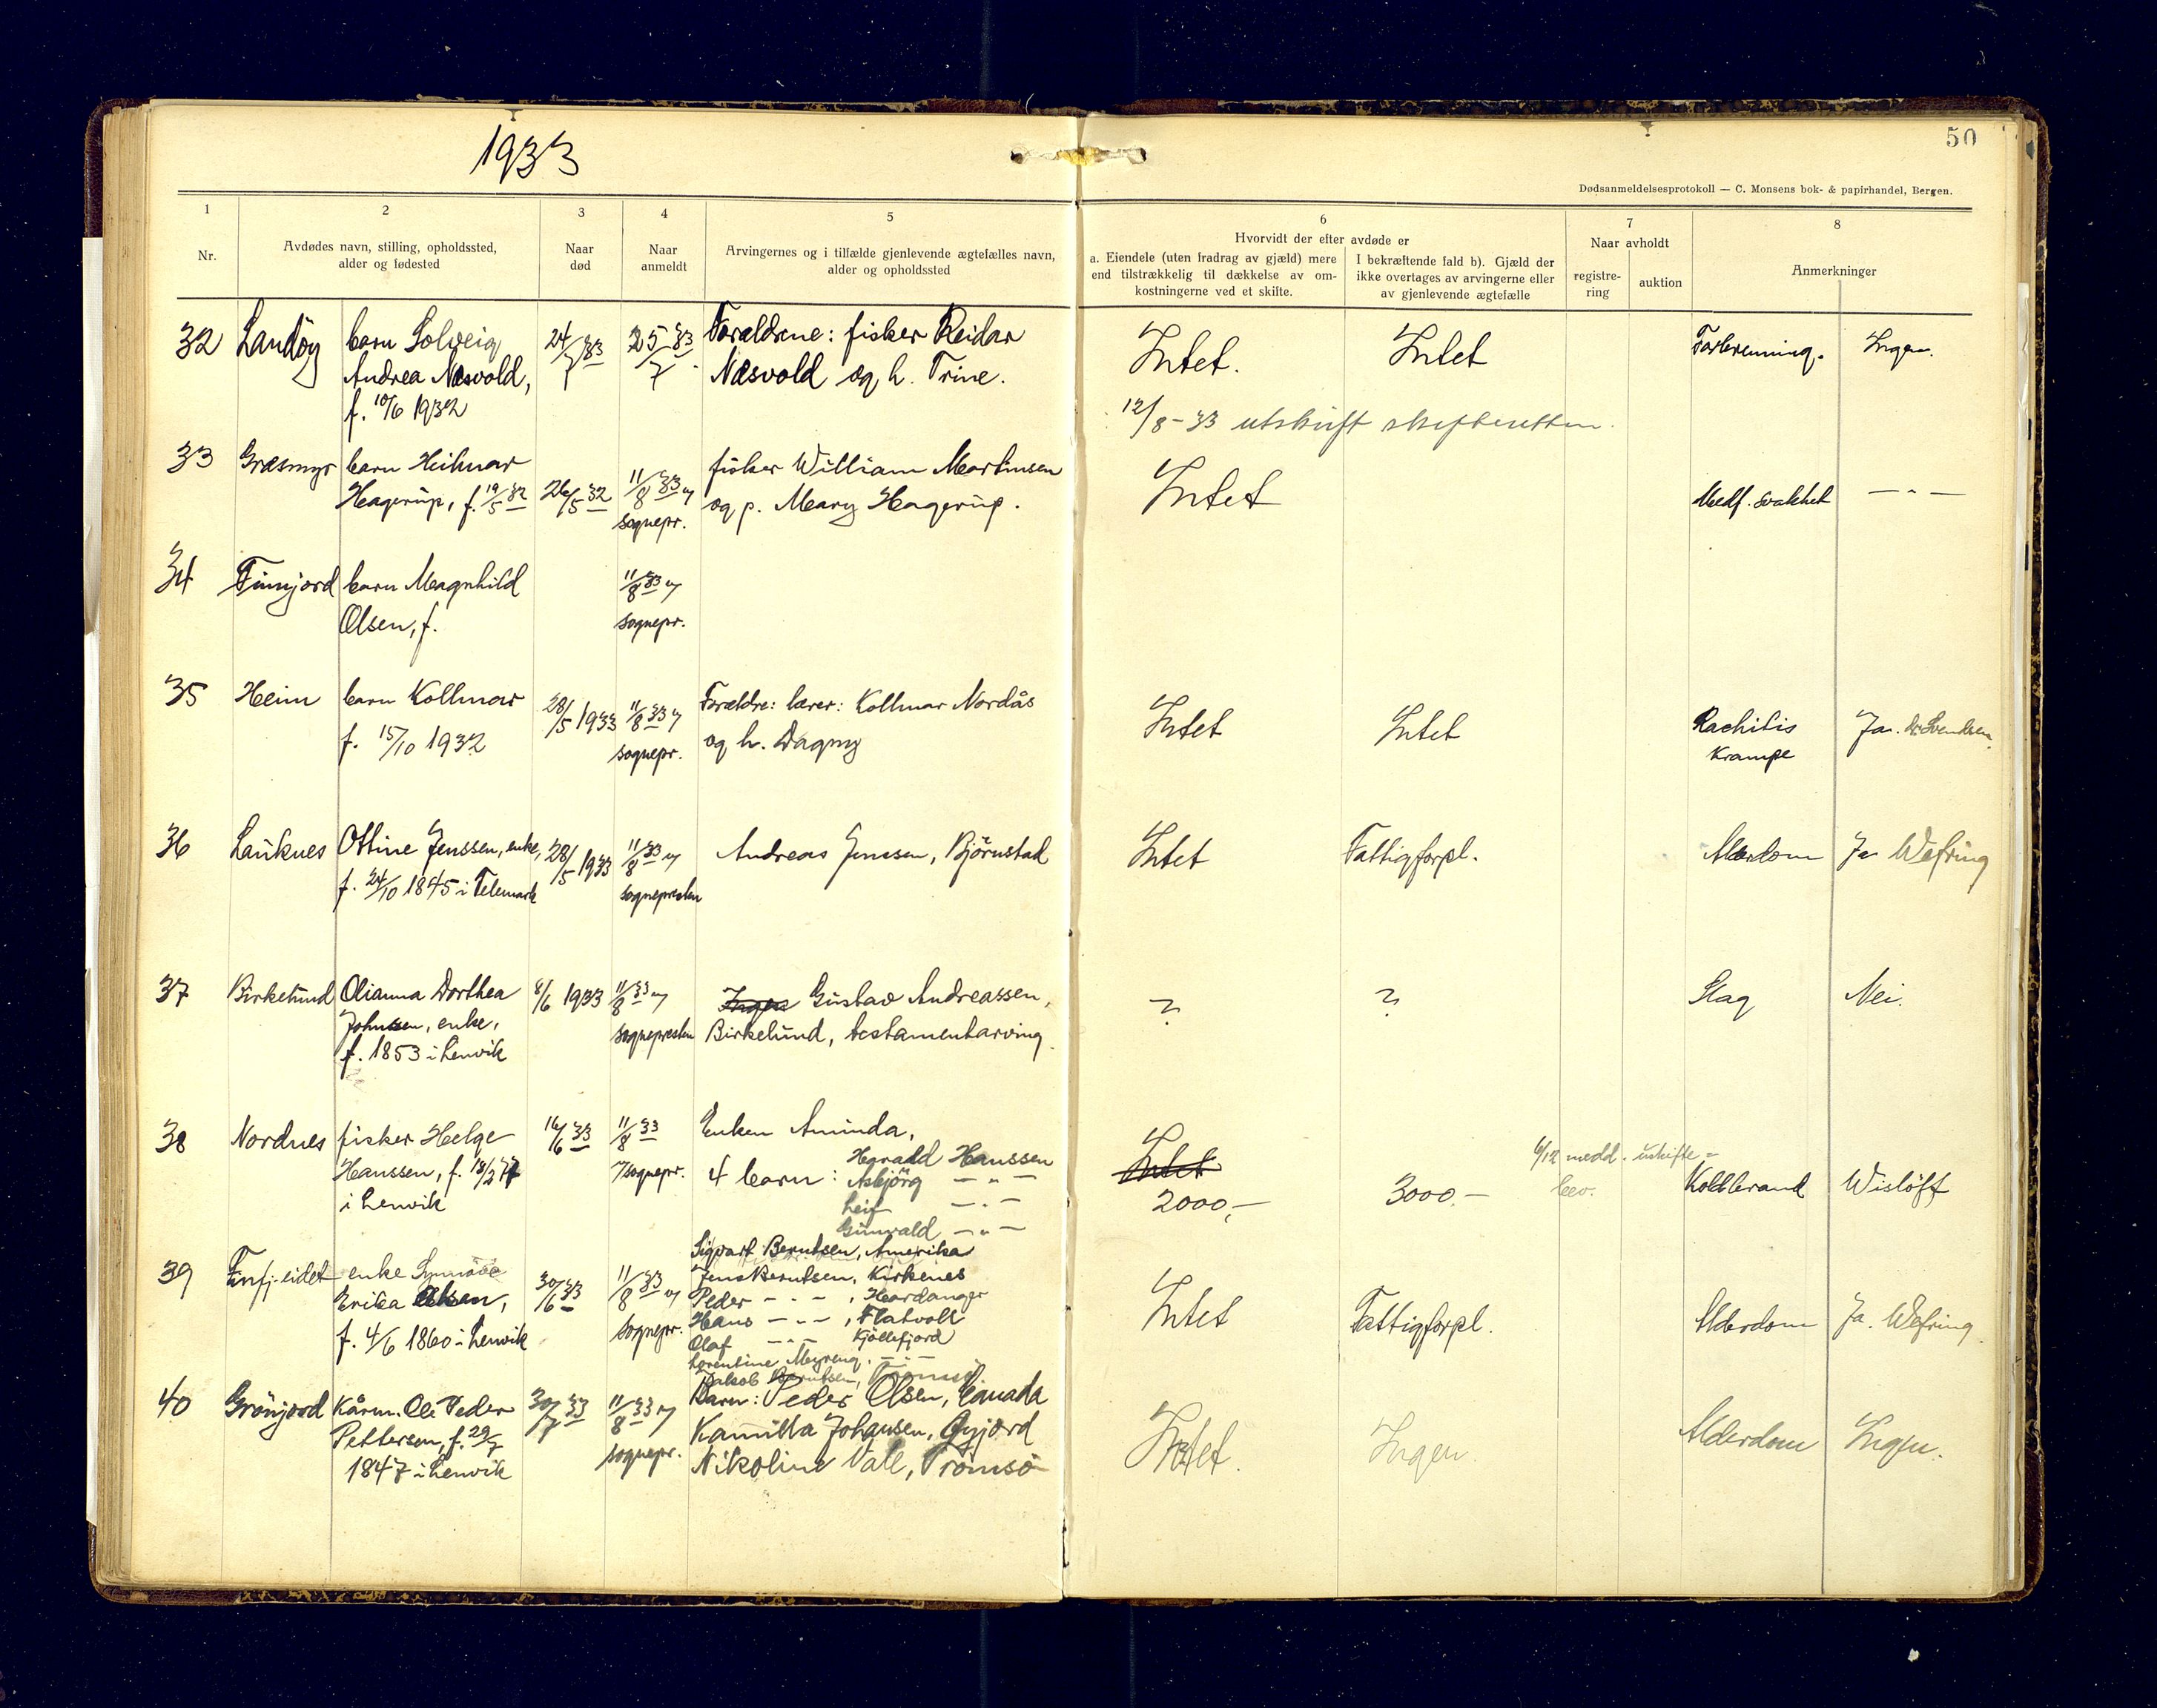 1933
50
Dødsanmeldelsesprotokoll — C. Monsens bok- & papirhandel, Bergen.
1 2 3 4 5 6 7 8
Nr.
Avdødes navn, stilling, opholdssted, alder og fødested
Naar død
Naar anmeldt
Arvingernes og i tilfælde gjenlevende ægtefælles navn, alder og opholdssted
Hvorvidt der efter avdøde er
a. Eiendele (uten fradrag av gjæld) mere end tilstrækkelig til dækkelse av omkostningerne ved et skifte.
I bekræftende fald b). Gjæld der ikke overtages av arvingerne eller av gjenlevende ægtefælle
Naar avholdt
registrering
auktion
Anmerkninger
32 Landöy barn Solveig 24/7 33 25/7 33 Foreldrene: fisker Reidar Intet. Intet Forbrenning. Ingen.
Andrea Næsvold, Næsvold og h. Trine.
f. 10/6 1932
12/8-33 utskrift skifteretten.
33 Græsmyr barn Heilmar fisker William Martinsen Intet
Hagerup, f. 19/5 32 26/5 32 11/8 33 og p. Mary Hagerup. Medf. svakhet — " —
sognepr.
34 Finnjord barn Magnhild 11/8 33
Olsen, f. sognepr.
35 Heim barn Kollmar 28/5 1933 11/8 33 Foreldre: lærer: Kollmar Nordås Intet Intet Rachitis Ja. Dr. Svendsen
f. 15/10 1932 sognepr. og h. Dagny Krampe
36 Lauknes Ottine Jenssen, enke, 28/5 1933 11/8 33 Andreas Jenssen, Björnstad Intet Fattigforpl. Alderdom Ja Wefring
f. 24/10 1845 i Telemark sognepresten
37 Birkelund Olianna Dorthea 8/6 1933 11/8 33 Ingen Gustav Andreassen, ? ? Slag Nei.
Johnsen, enke, sognepresten Birkelund, testamentarving
f. 1853 i Lenvik
38 Nordnes fisker Helge 16/6 33 11/8 33 Enken Aminda, Intet
Hanssen, f. 18/2 77 sognepr. 4 barn: Harald Hanssen 6/12 medd. uskifte-
i Lenvik Asbjörg — " — 2000,- 3000.- bev. Koldbrand Wislöff
Leif — " —
Gunvald — " —
39 Finfj.eidet enke Synnöve 30/6 33 11/8 33 Sigvart Berntsen, Amerika
Erika Olsen, Jens Berntsen, Kirkenes
f. 4/6 1860 i Lenvik sognepr. Peder — " —, Hardanger Intet Fattigforpl. Alderdom Ja. Wefring
Hans — " —, Flatvoll
Olaf — " — Kjöllefjord
Lorentine Myreng. — " —
Jakob Berntsen, Tromsö.
40 Grönjord Kårm. Ole Peder 30/7 33 11/8 33 Barn: Peder Olsen, Canada
Pettersen, f. 29/7 sognepr. Kamilla Johansen, Gyjord Intet. Ingen. Alderdom Ingen.
1847 i Lenvik Nikoline Vall, Tromsö